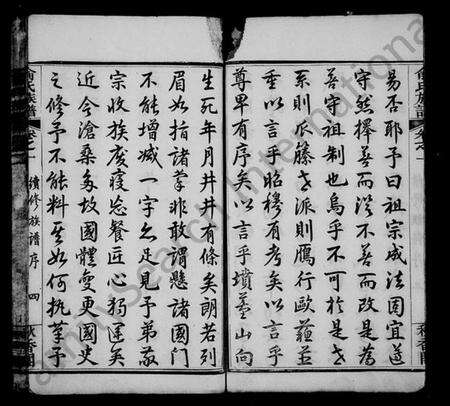 易否耶予曰祖宗成法固宜遵
守然擇善而從不善而改是為
善守祖制也烏乎不可於是世
系則瓜藤世派則鴈行歐蘓並
垂以言乎昭穆有考矣以言乎
尊卑有序矣以言乎墳墓山向
生死年月井井有條矣朗若列
眉如指諸掌非敢謂懸諸國門
不能增減一字亦足見予弟敬
宗收族廢寢忘餐匠心獨運矣
近今滄桑多故國體變更國史
之修予不能料其如何執筆予
氏族譜 卷之一 續修族譜序 四
FamilySearch International